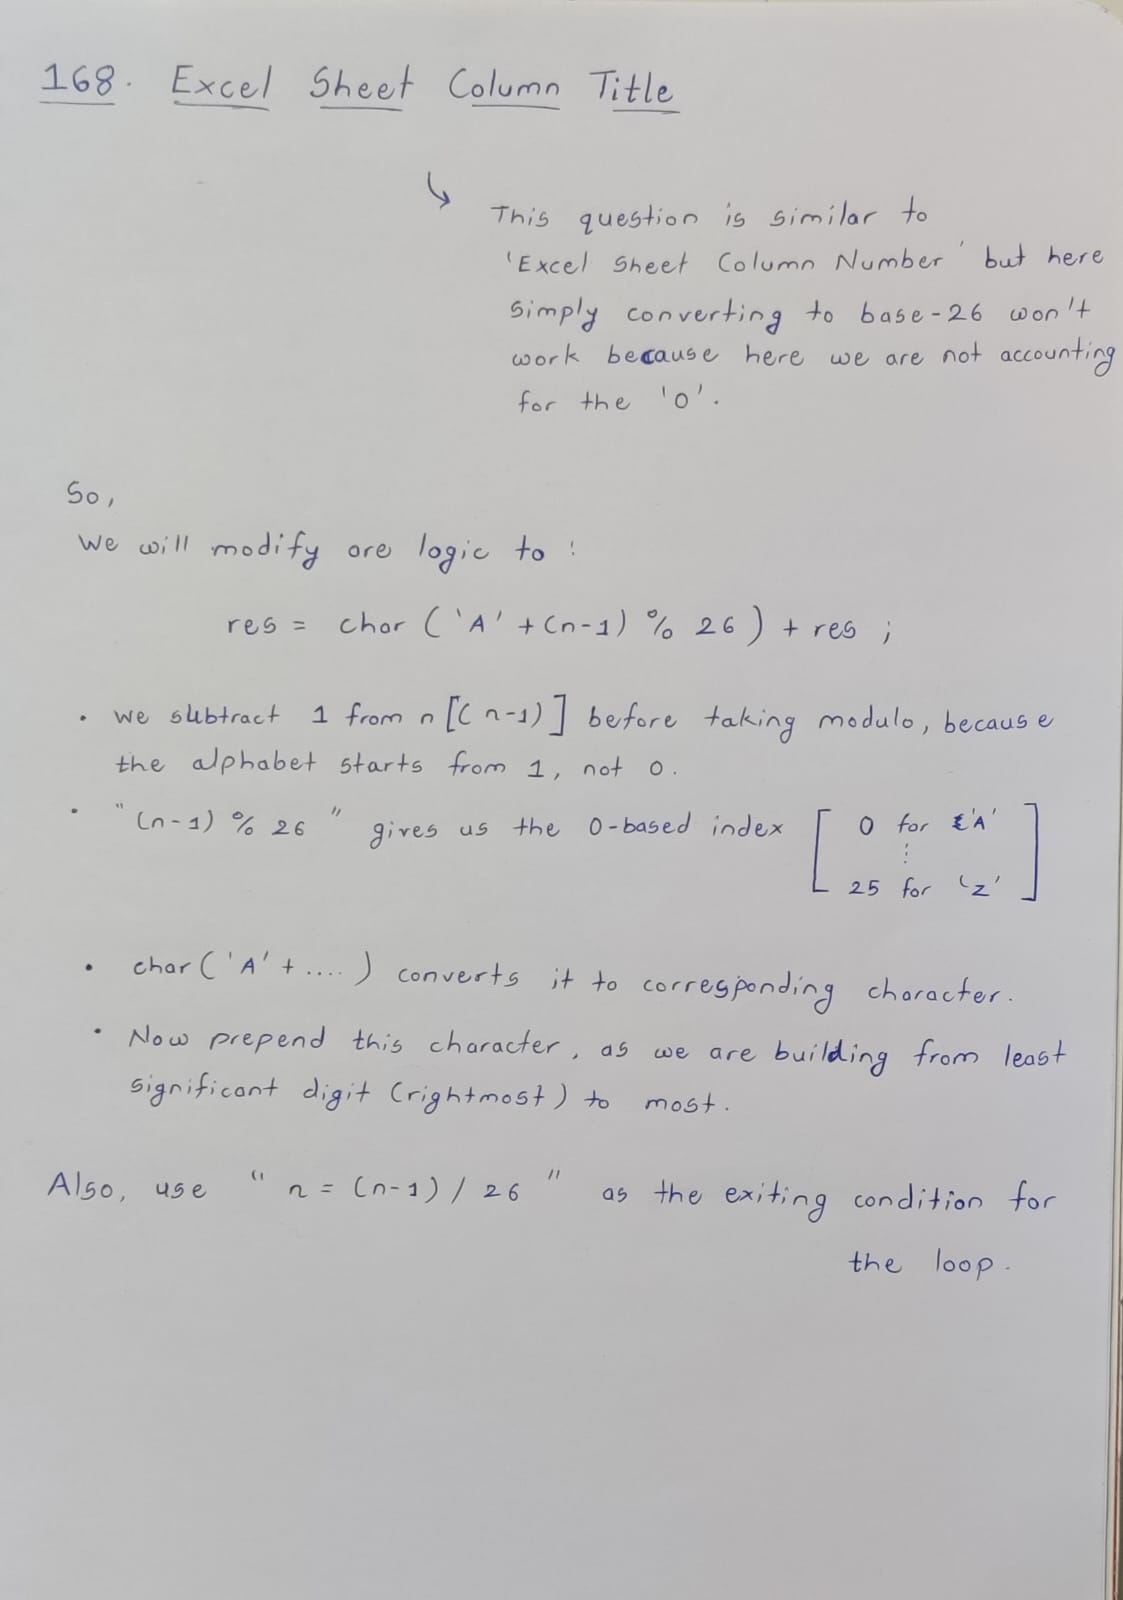 168. Excel Sheet Column Title
↳ This question is similar to
'Excel Sheet Column Number' but here
simply converting to base-26 won't
work because here we are not accounting
for the '0'.
So,
we will modify ore logic to :
res = char ('A' + (n-1) % 26) + res ;
• we subtract 1 from n [(n-1)] before taking modulo, because
the alphabet starts from 1, not 0.
• "(n-1) % 26" gives us the 0-based index [ 0 for 'A'
⋮
25 for 'Z' ]
• char ('A' + ....) converts it to corresponding character.
• Now prepend this character, as we are building from least
significant digit (rightmost) to most.
Also, use "n = (n-1) / 26" as the exiting condition for
the loop.